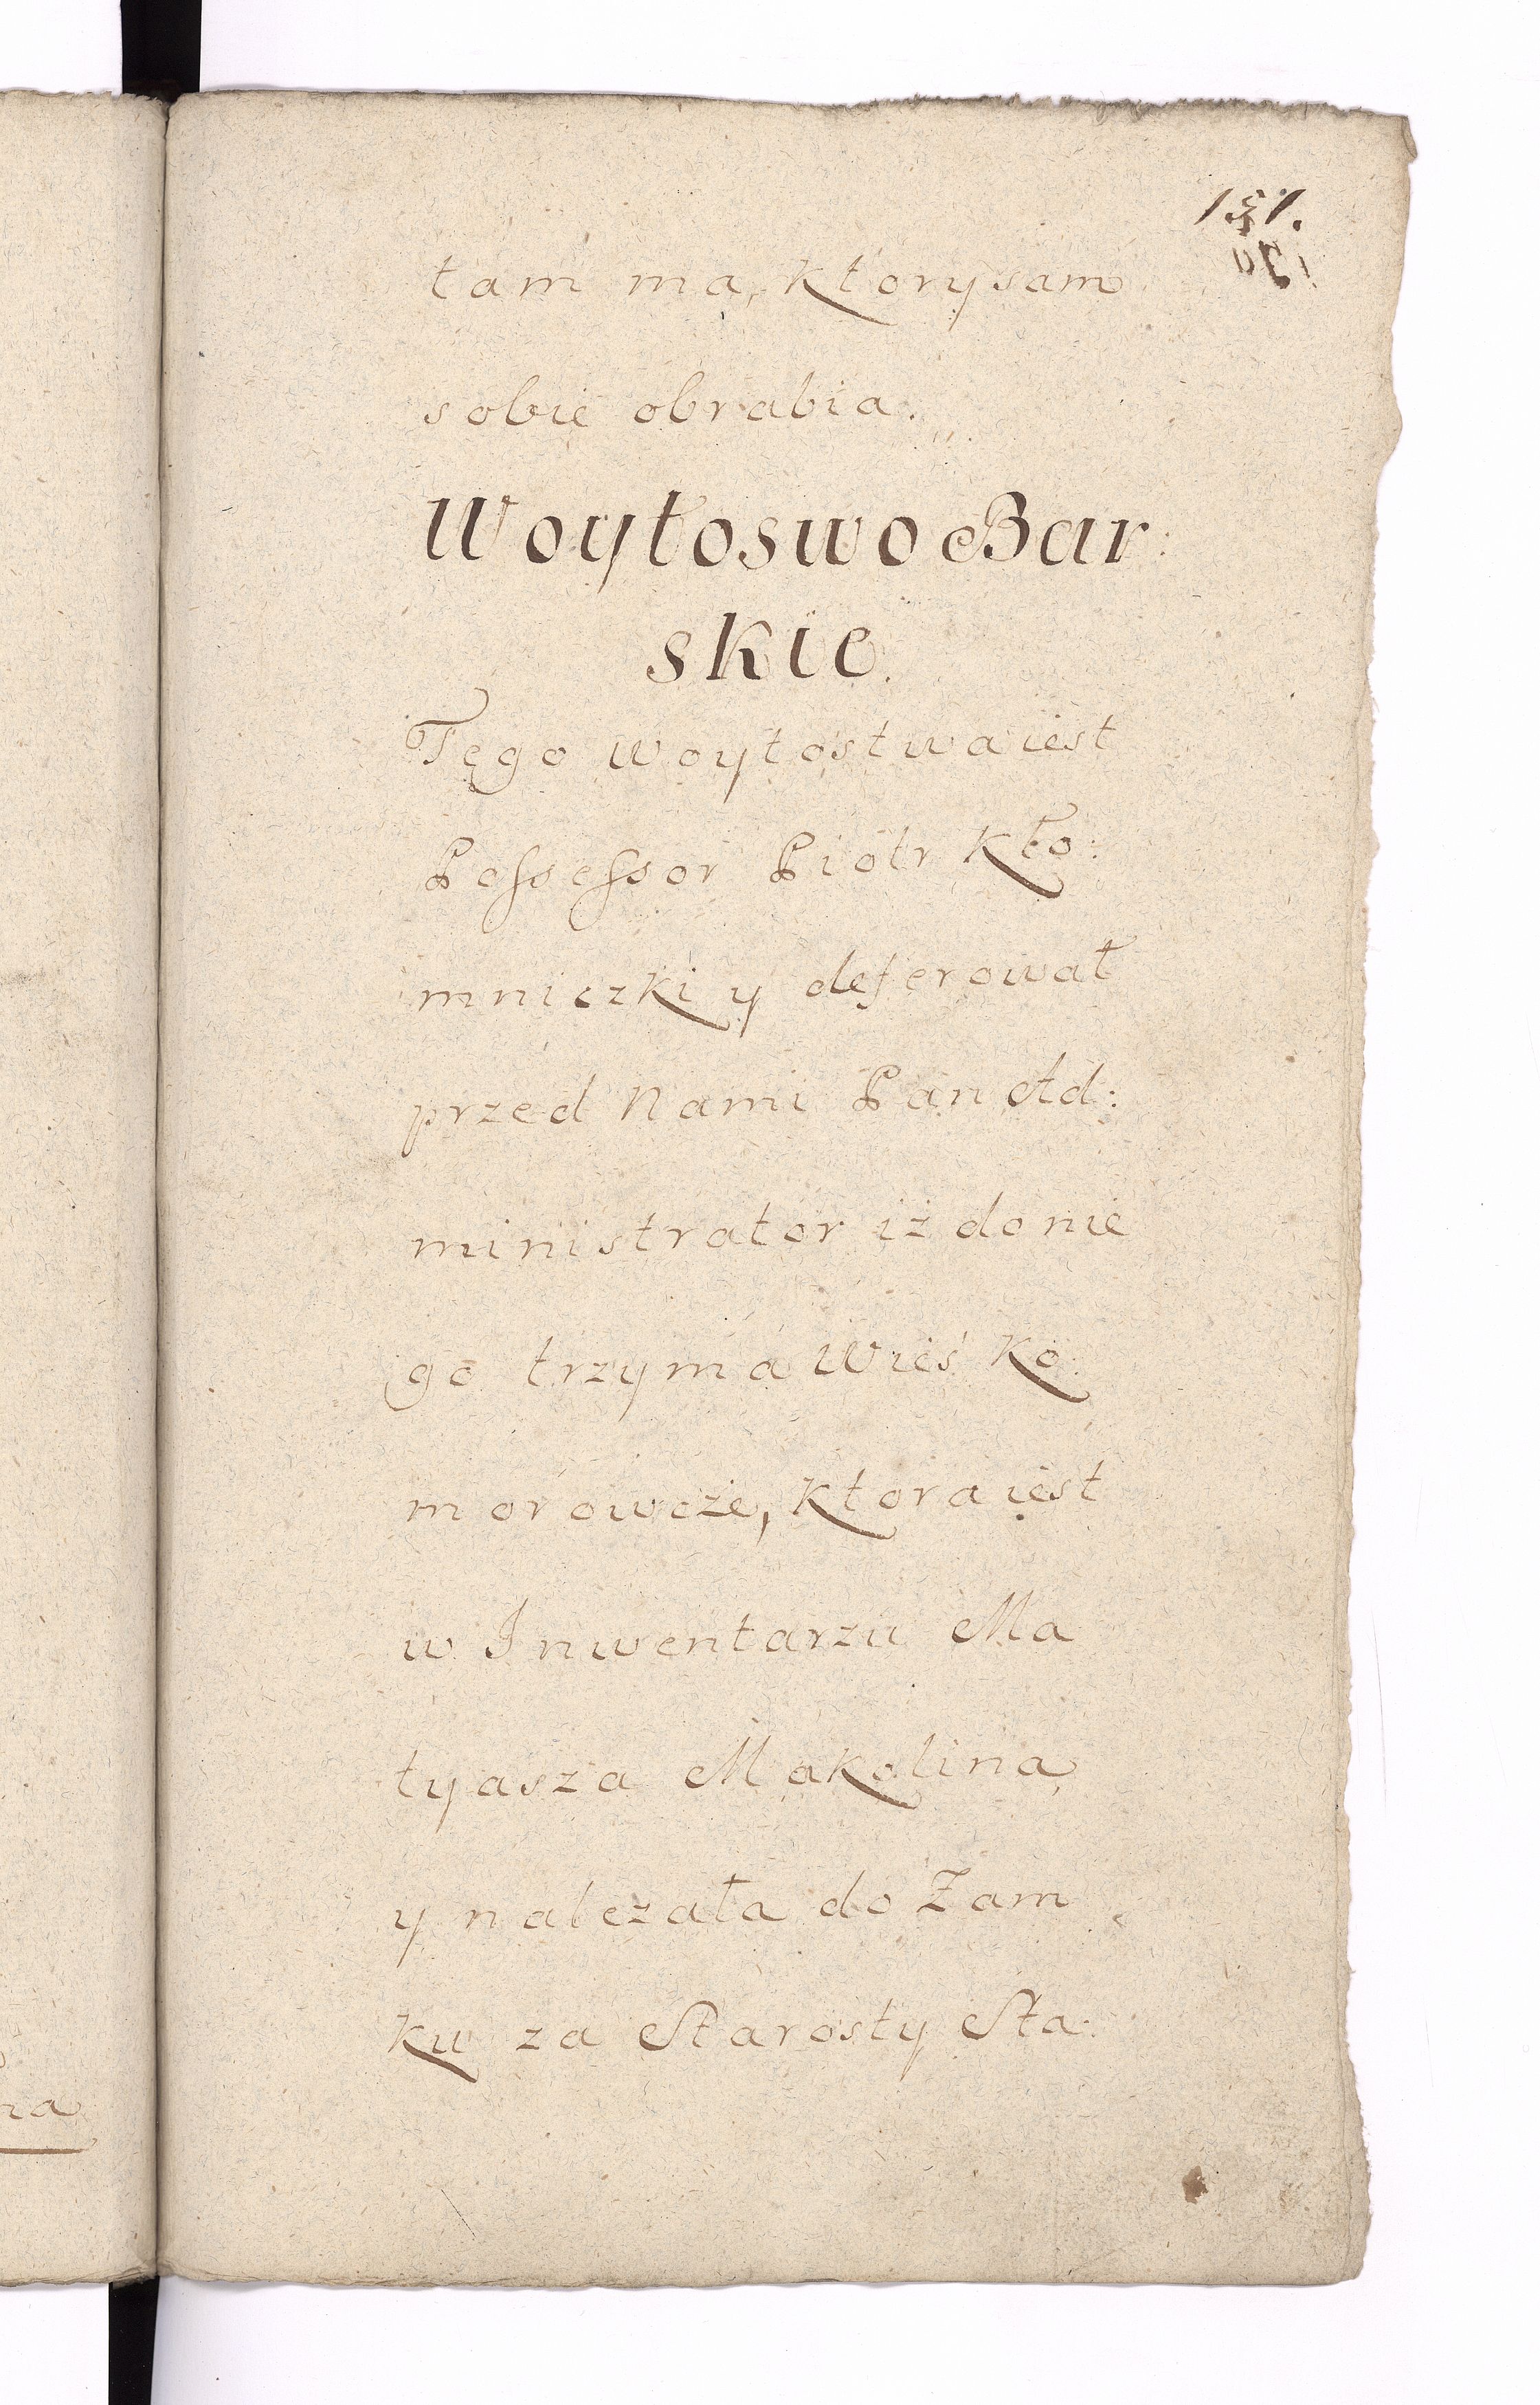 151.
tam ma, ktory sam
sobie obrabia.
Woytoswo Bar:
skie.
Tego woytostwa iest
Possessor Piotr Kło:
mniczki y deferował
przed Nami Pan Ad:
ministrator iż do nie
go trzyma Wieś Ko:
morowcze, ktora iest
w Inwentarzu Ma
tyasza Makolina
y należała do Zam
ku za Starosty Sta:
na